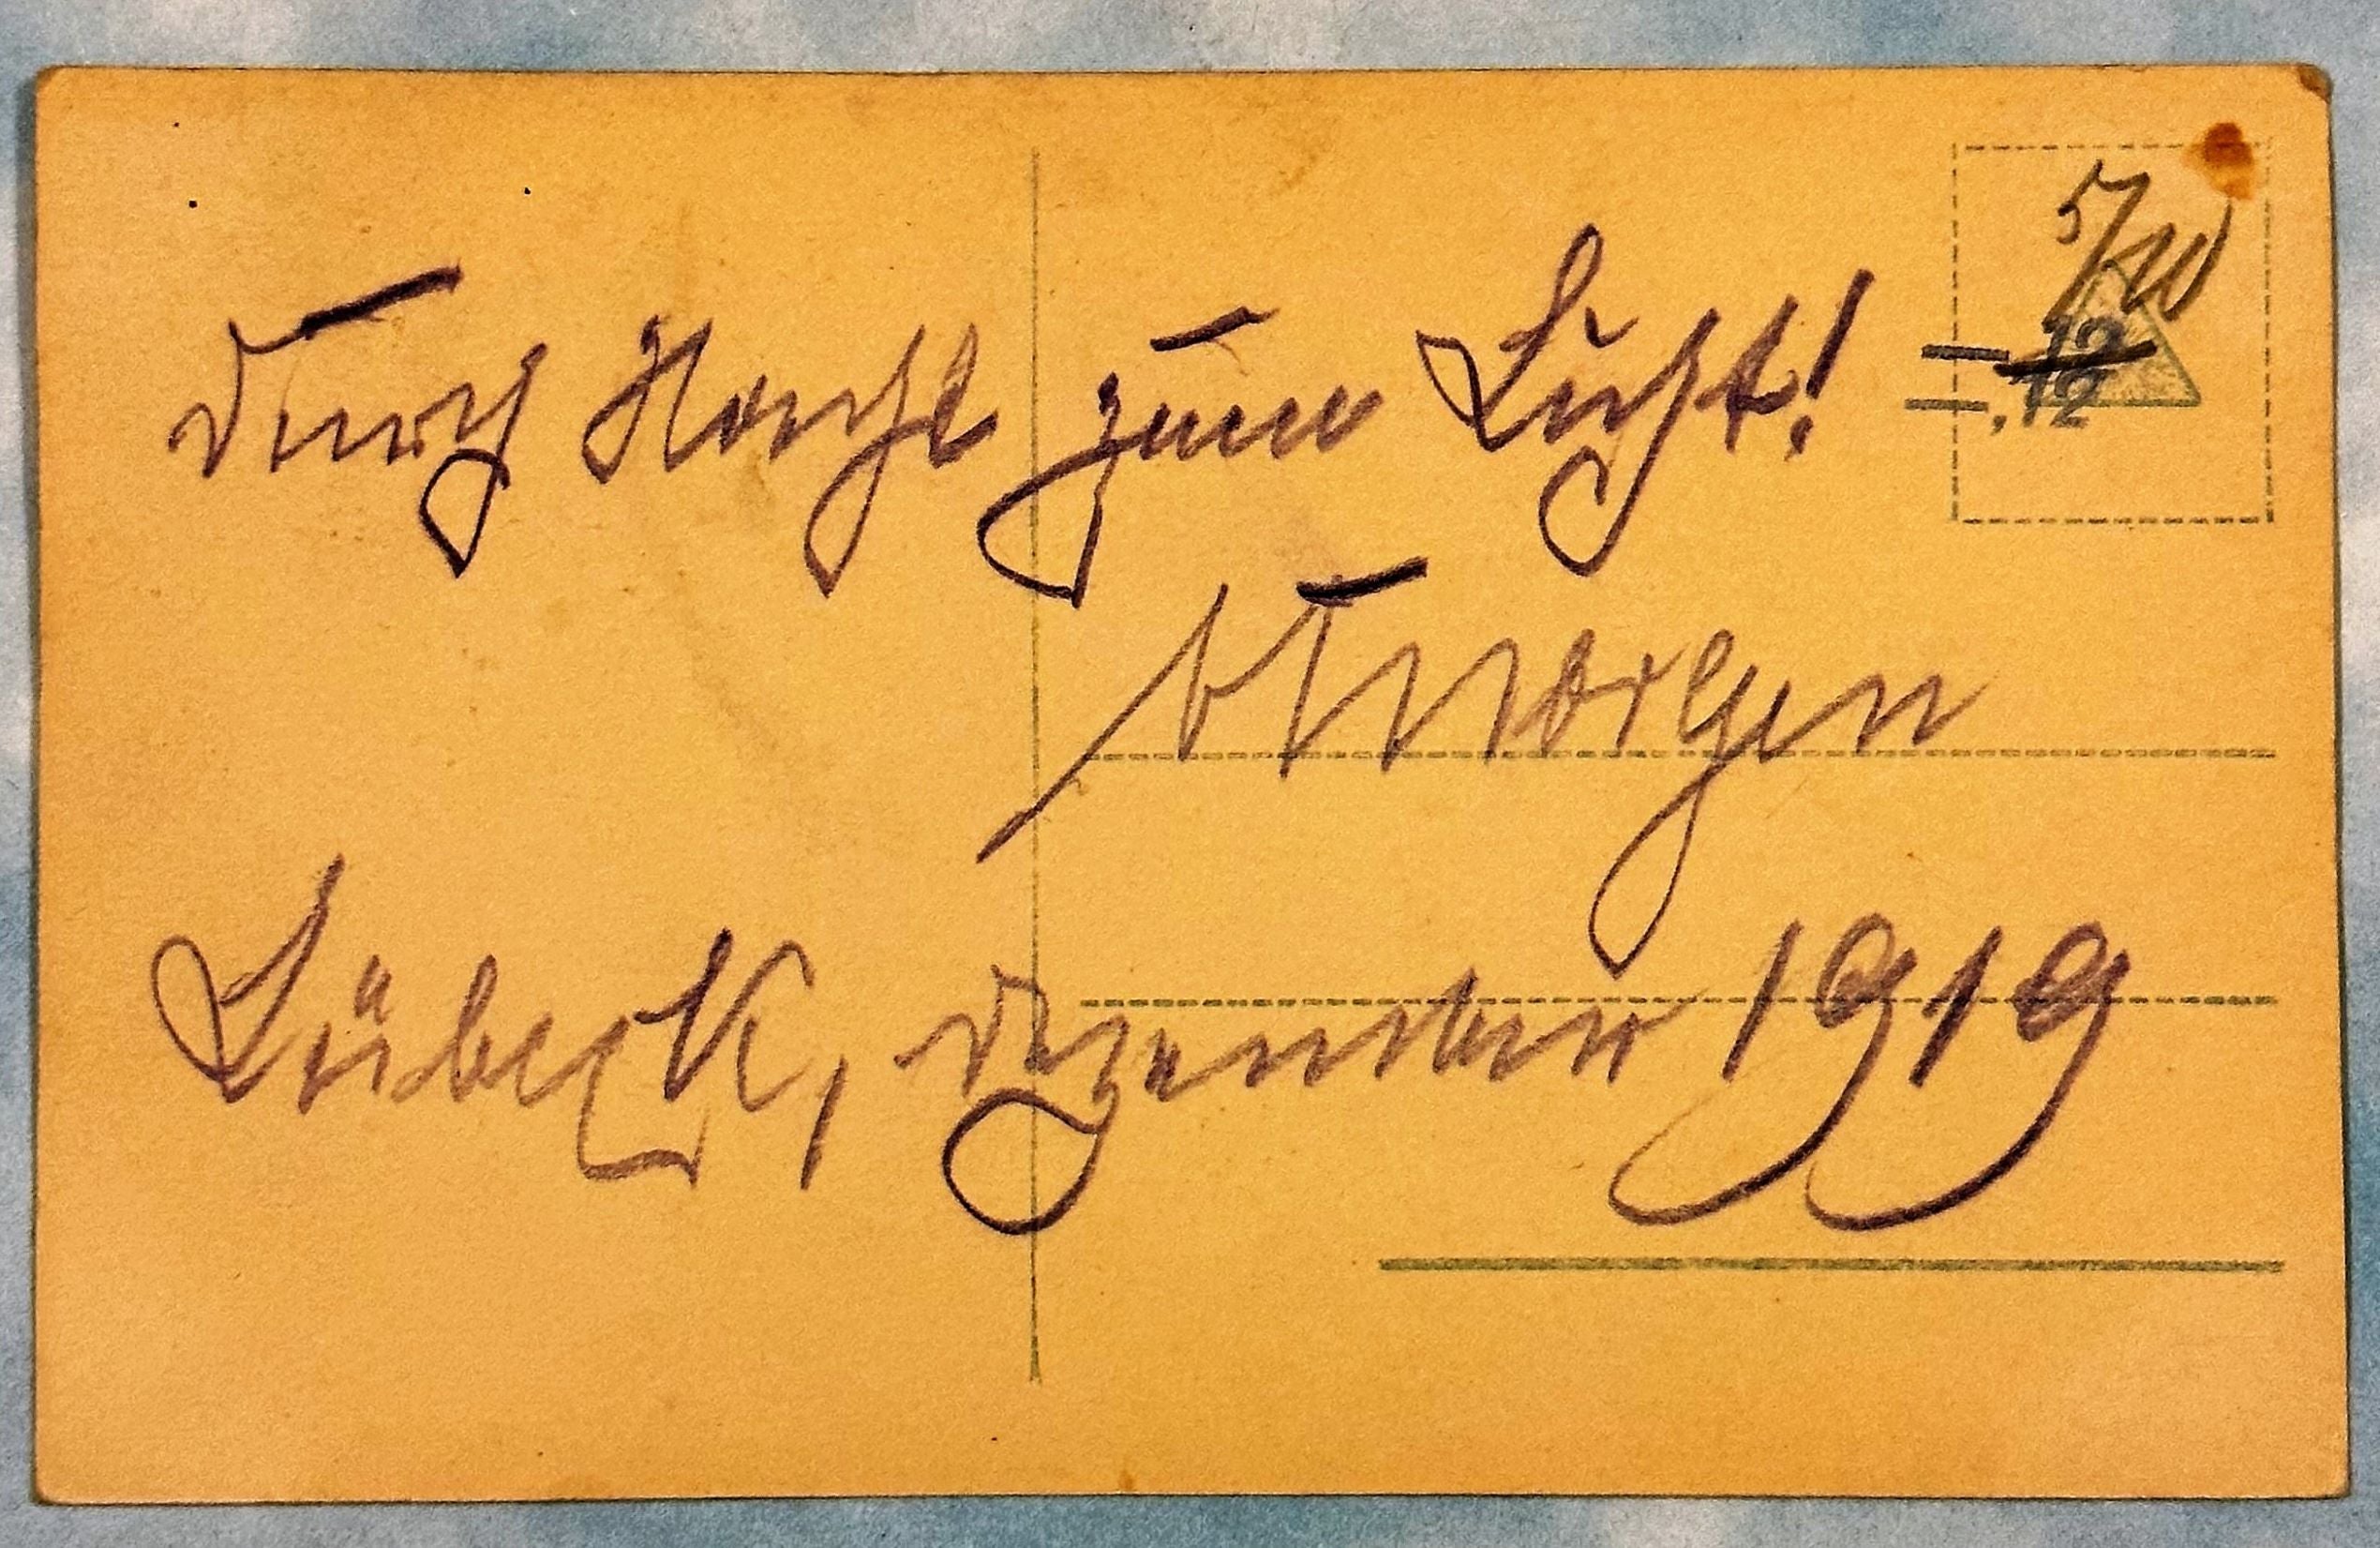 5/10
Durch Nacht zum Licht!
12
-.12
Morgen
Lübeck, Dezember 1919